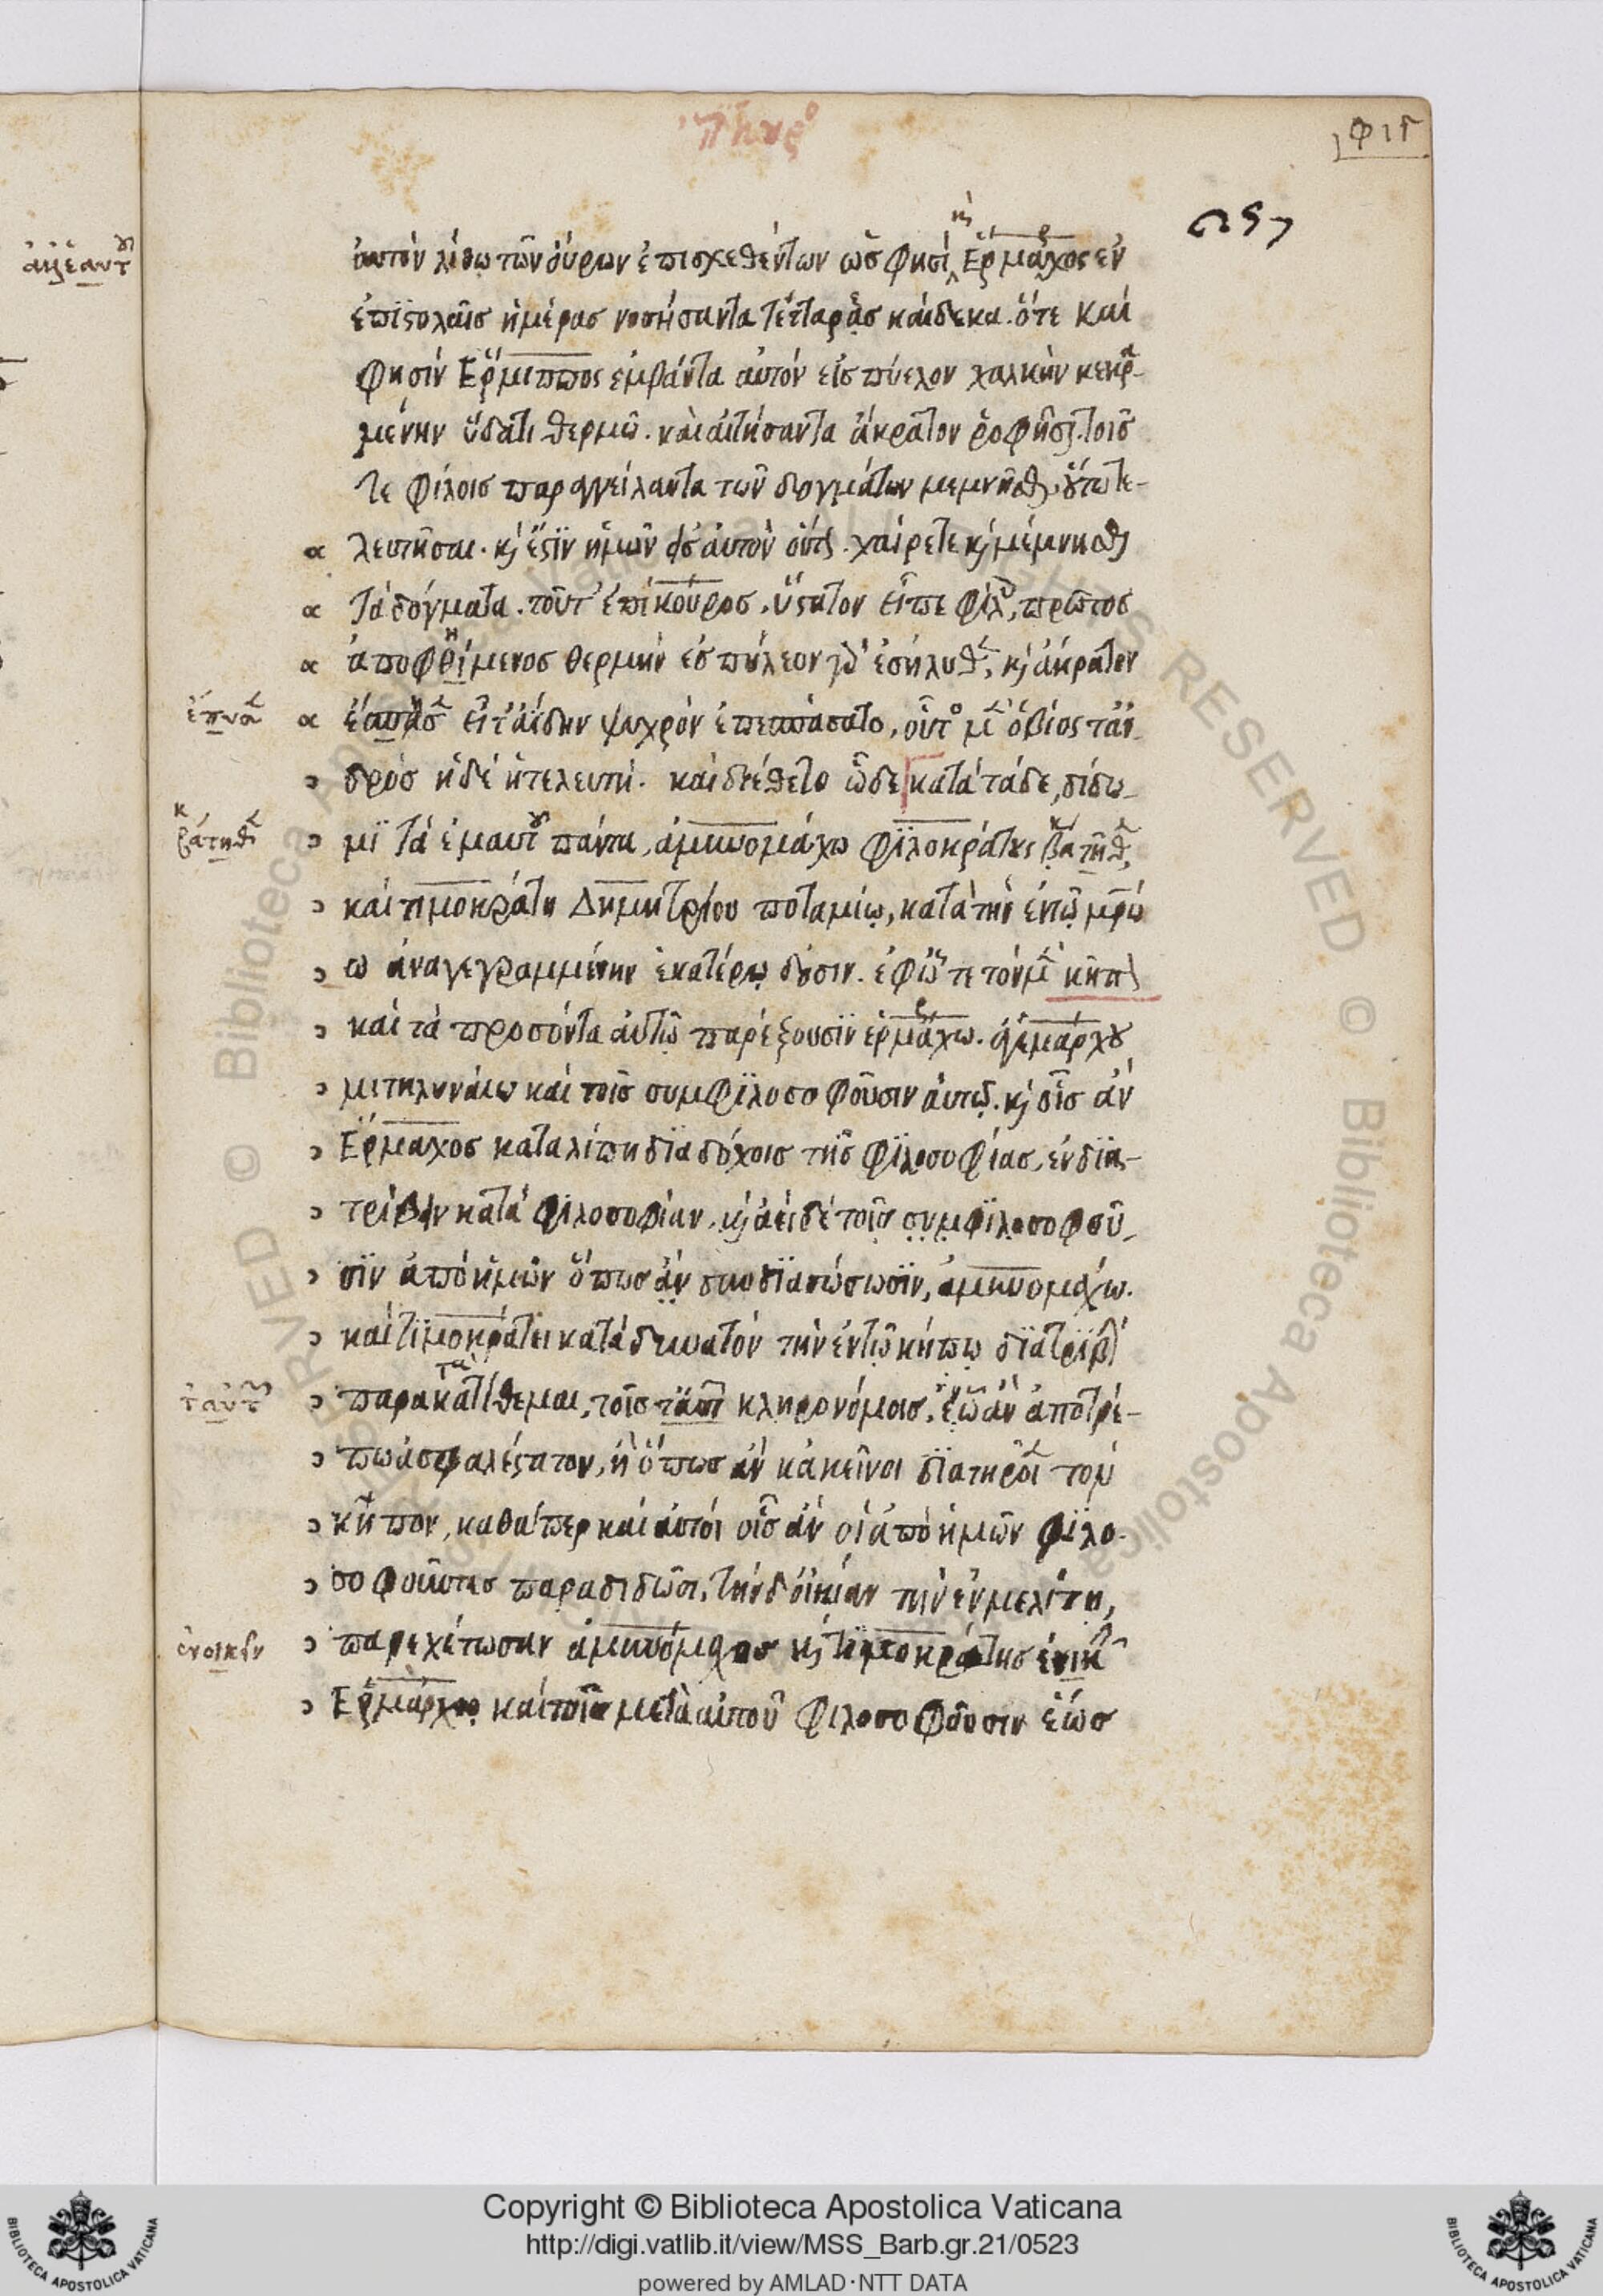 αὐτὸν λίθῳ τῶν οὔρων ἐπισχεθέντων ὥς φησι κ̀ Ἕρμαρχος ἐν
ἐπιστολαῖς ἡμέρας νοσήσαντα τέτταρας καίδεκα. ὅτε καί
φησιν Ἕρμιππος ἐμβάντα αὐτὸν εἰς πύελον χαλκῆν κεκρα-
μένην ὕδατι θερμῶ. καὶ αἰτήσαντα ἄκρατον ῥοφῆσαι. τοῖς
τε φίλοις παραγγείλαντα τῶν δογμάτων μεμνῆσθαι, οὕτω τε-
λευτῆσαι. κ̀ ἔστιν ἡμῶν εἰς αὐτὸν οὕτως. χαίρετε κ̀ μέμνησθε
τὰ δόγματα. τοῦτ' ἐπίκουρος, ὕστατον εἶπε φίλοις, πρῶτος
ἀποφθίμενος θερμὴν ἐς πύελον ἐσήλυθε, κ̀ ἄκρατον
εἶτ' ἀΐδην ψυχρὸν ἐπεσπάσατο, οὗτος μὲν ὁ βίος τἀν-
δρός ἡ δὲ ἡ τελευτή. καὶ διέθετο ὧδε κατὰ τάδε, δίδω-
μϊ τὰ ἐμαυτοῦ πάντα, ἀμυνομάχω φϊλοκράτους βατῆθεν,
καὶ τιμοκράτη Δημητρίου ποταμίῳ, κατὰ τὴν ἐν τῷ μητρώ
ω ἀναγεγραμμένην ἑκατέρῳ δόσιν. ἐφ' ὧτε τὸν μὲν κῆπον
καὶ τὰ προσόντα αὐτῷ παρέξουσϊν ἑρμάρχω. ἀγεμάρχου
μιτηληναίω καὶ τοῖς συμφϊλοσοφοῦσιν αὐτῷ. κ̀ οἷς ἂν
Ἕρμαχος καταλίπη δϊαδόχοις τῆς φϊλοσοφίας, ἐνδϊα-
τρίβειν κατὰ φϊλοσοφίαν, κ̀ ἀεὶ δὲ τοῖς συμφϊλοσοφοῦ-
σϊν ἀπὸ ἡμῶν ὅπως ἂν συνδϊασώσωσϊν, ἀμυνομάχω.
καὶ τϊμοκράτει κατὰ δυνατὸν τὴν ἐν τῷ κήπῳ δϊατρϊβὴν
παρακατατίθεμαι, τοῖς τ' αὐτῶν κληρονόμοις, ἐν ὧ ἂν ἀποτρέ-
πω ἀσφαλέστατον, ἢ ὅπως ἂν κἀκεῖνοι δϊατηρῶσι τὸν
κῆπον, καθάπερ καὶ αὐτοὶ οἷς ἂν οἱ ἀπὸ ἡμῶν φϊλο-
σοφοῦντες παραδιδῶσι. τὴν δ' οἰκίαν τὴν ἐν μελίτῃ,
παρεχέτωσαν ἀμυνόμαχος κ̀ τϊμοκράτης ἐνοικεῖν
Ἑρμάρχῳ καὶ τοῖς μετὰ αὐτοῦ φιλοσοφοῦσιν ἕως
ἐνοικεῖν
Copyright © Biblioteca Apostolica Vaticana
http://digi.vatlib.it/view/MSS_Barb.gr.21/0523
powered by AMLAD·NTT DATA
BIBLIOTECA APOSTOLICA VATICANA
BIBLIOTECA APOSTOLICA VATICANA